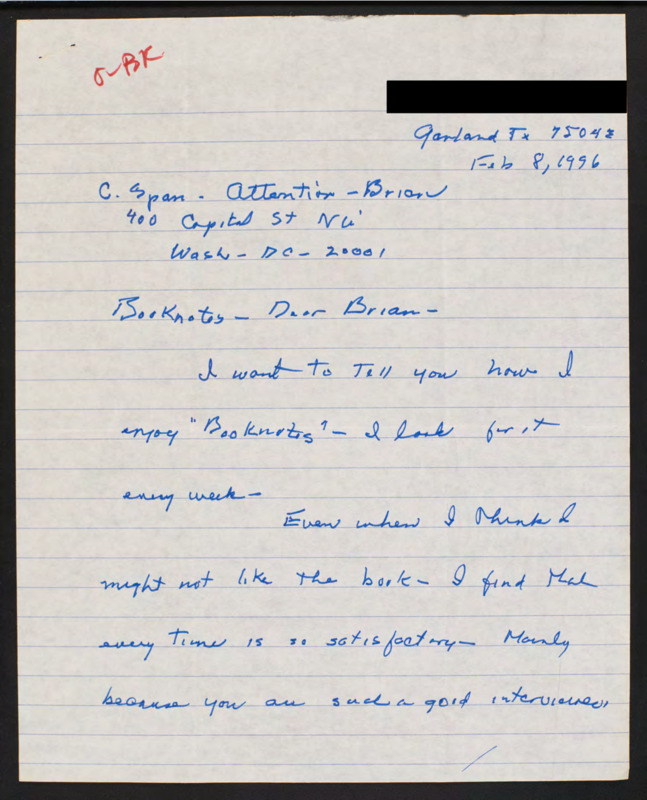 BK
Garland Tx 75042
Feb 8, 1996
C. Span - Attention - Brian
400 Capital St NW
Wash - DC - 20001
Booknotes - Dear Brian -
I want to Tell you how I
enjoy "Booknotes" - I look for it
every week -
Even when I think I
might not like the book - I find that
every Time is so satisfactory - Mainly
because you are such a good interviewer